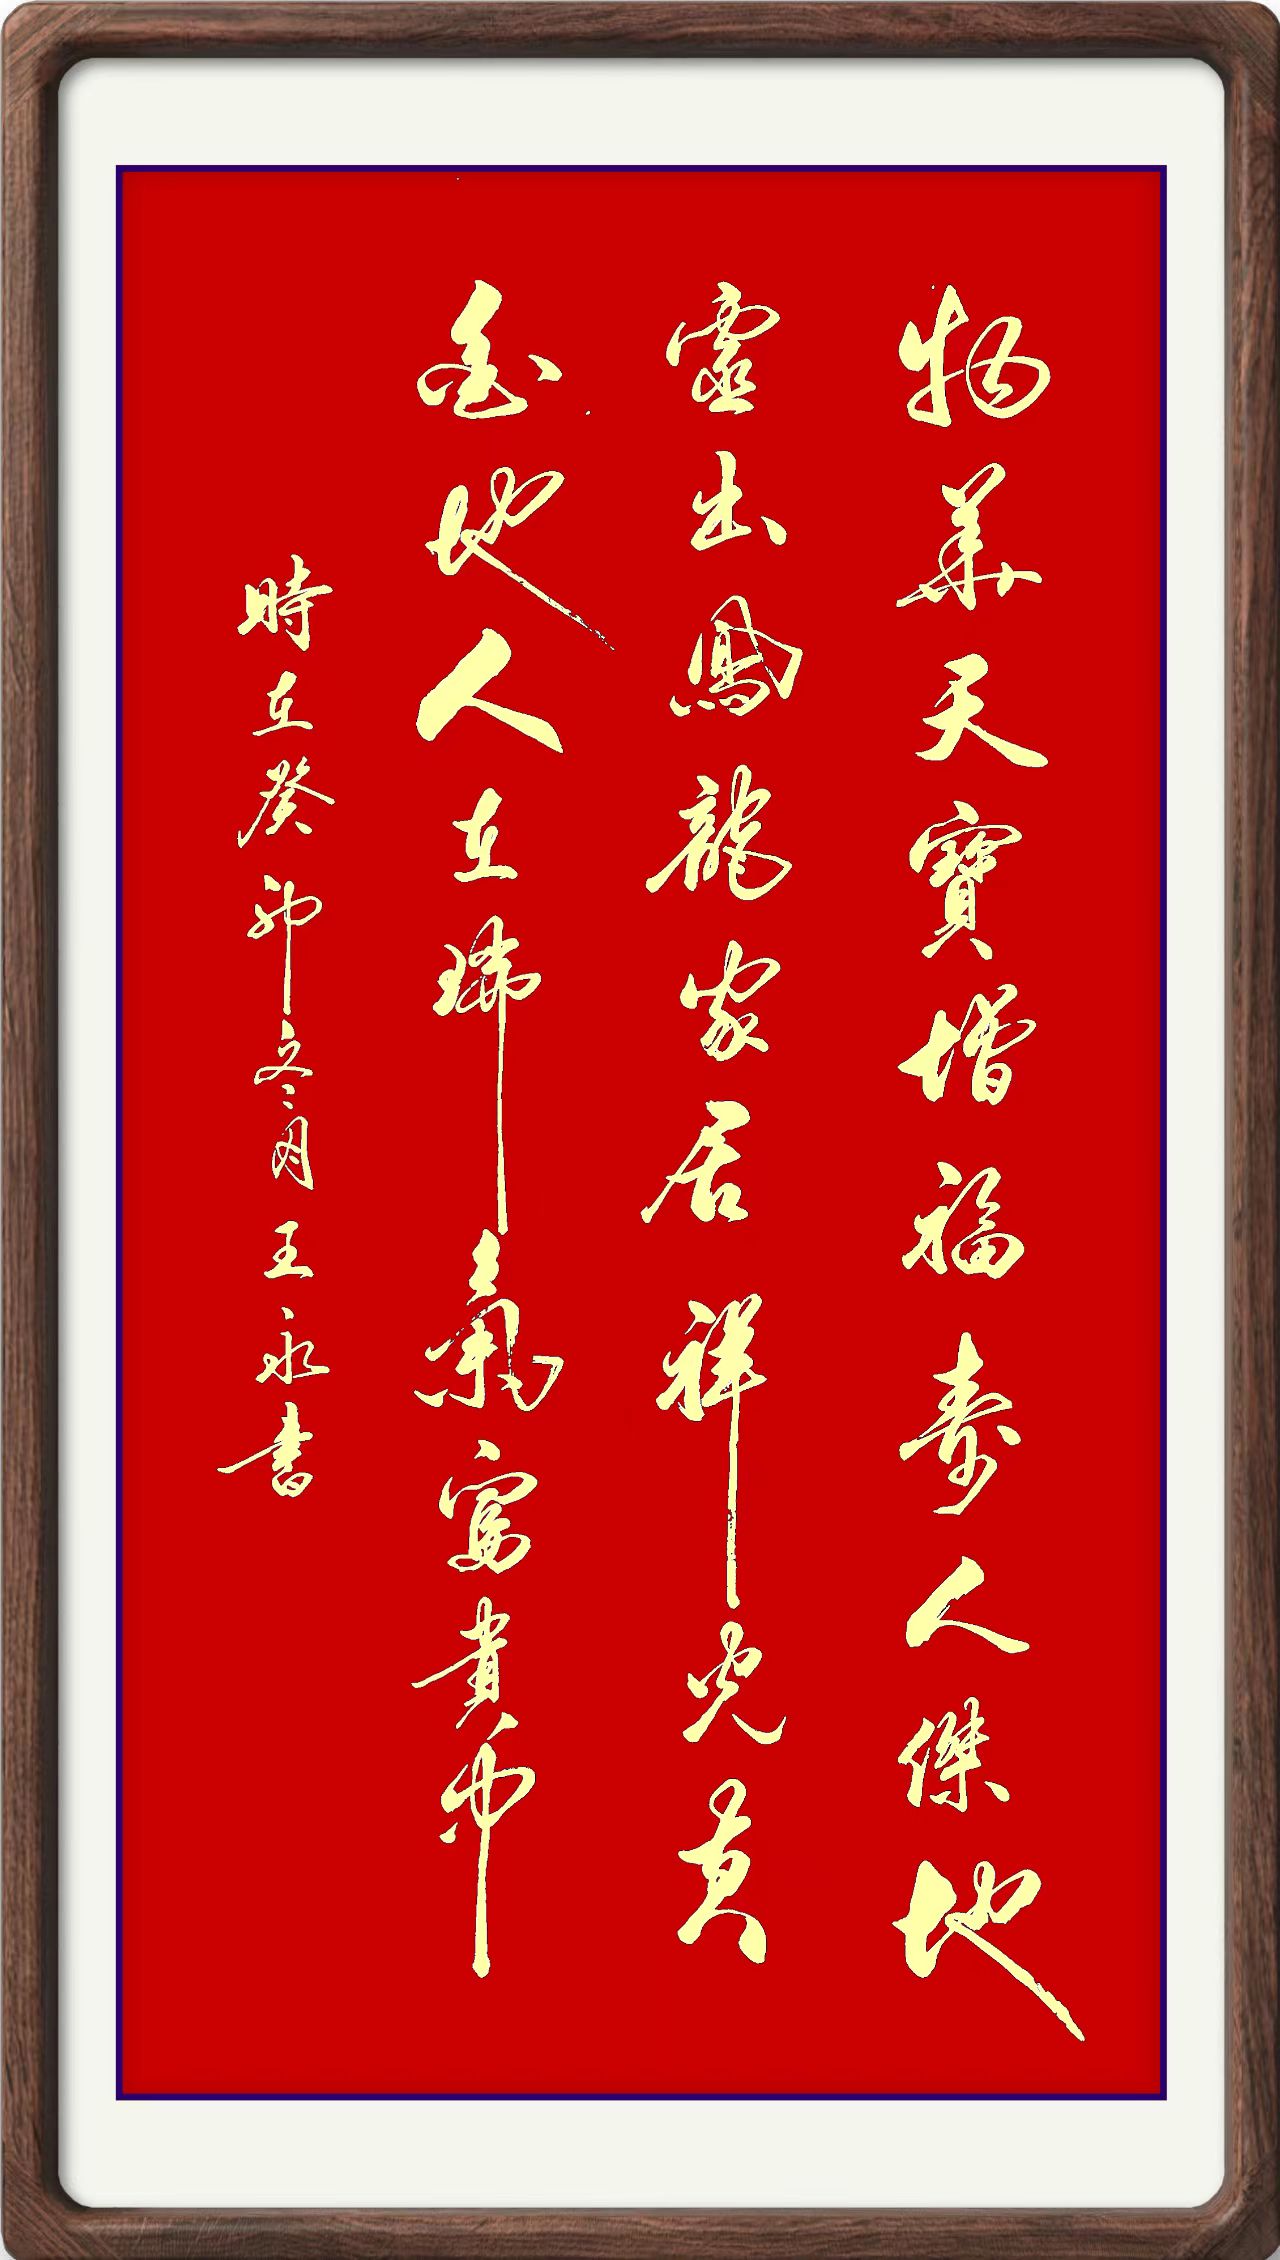 物華天寶增福壽人傑地
靈出鳳龍家居祥光黄
金地人在瑞氣富貴中
時在癸卯冬月王永書